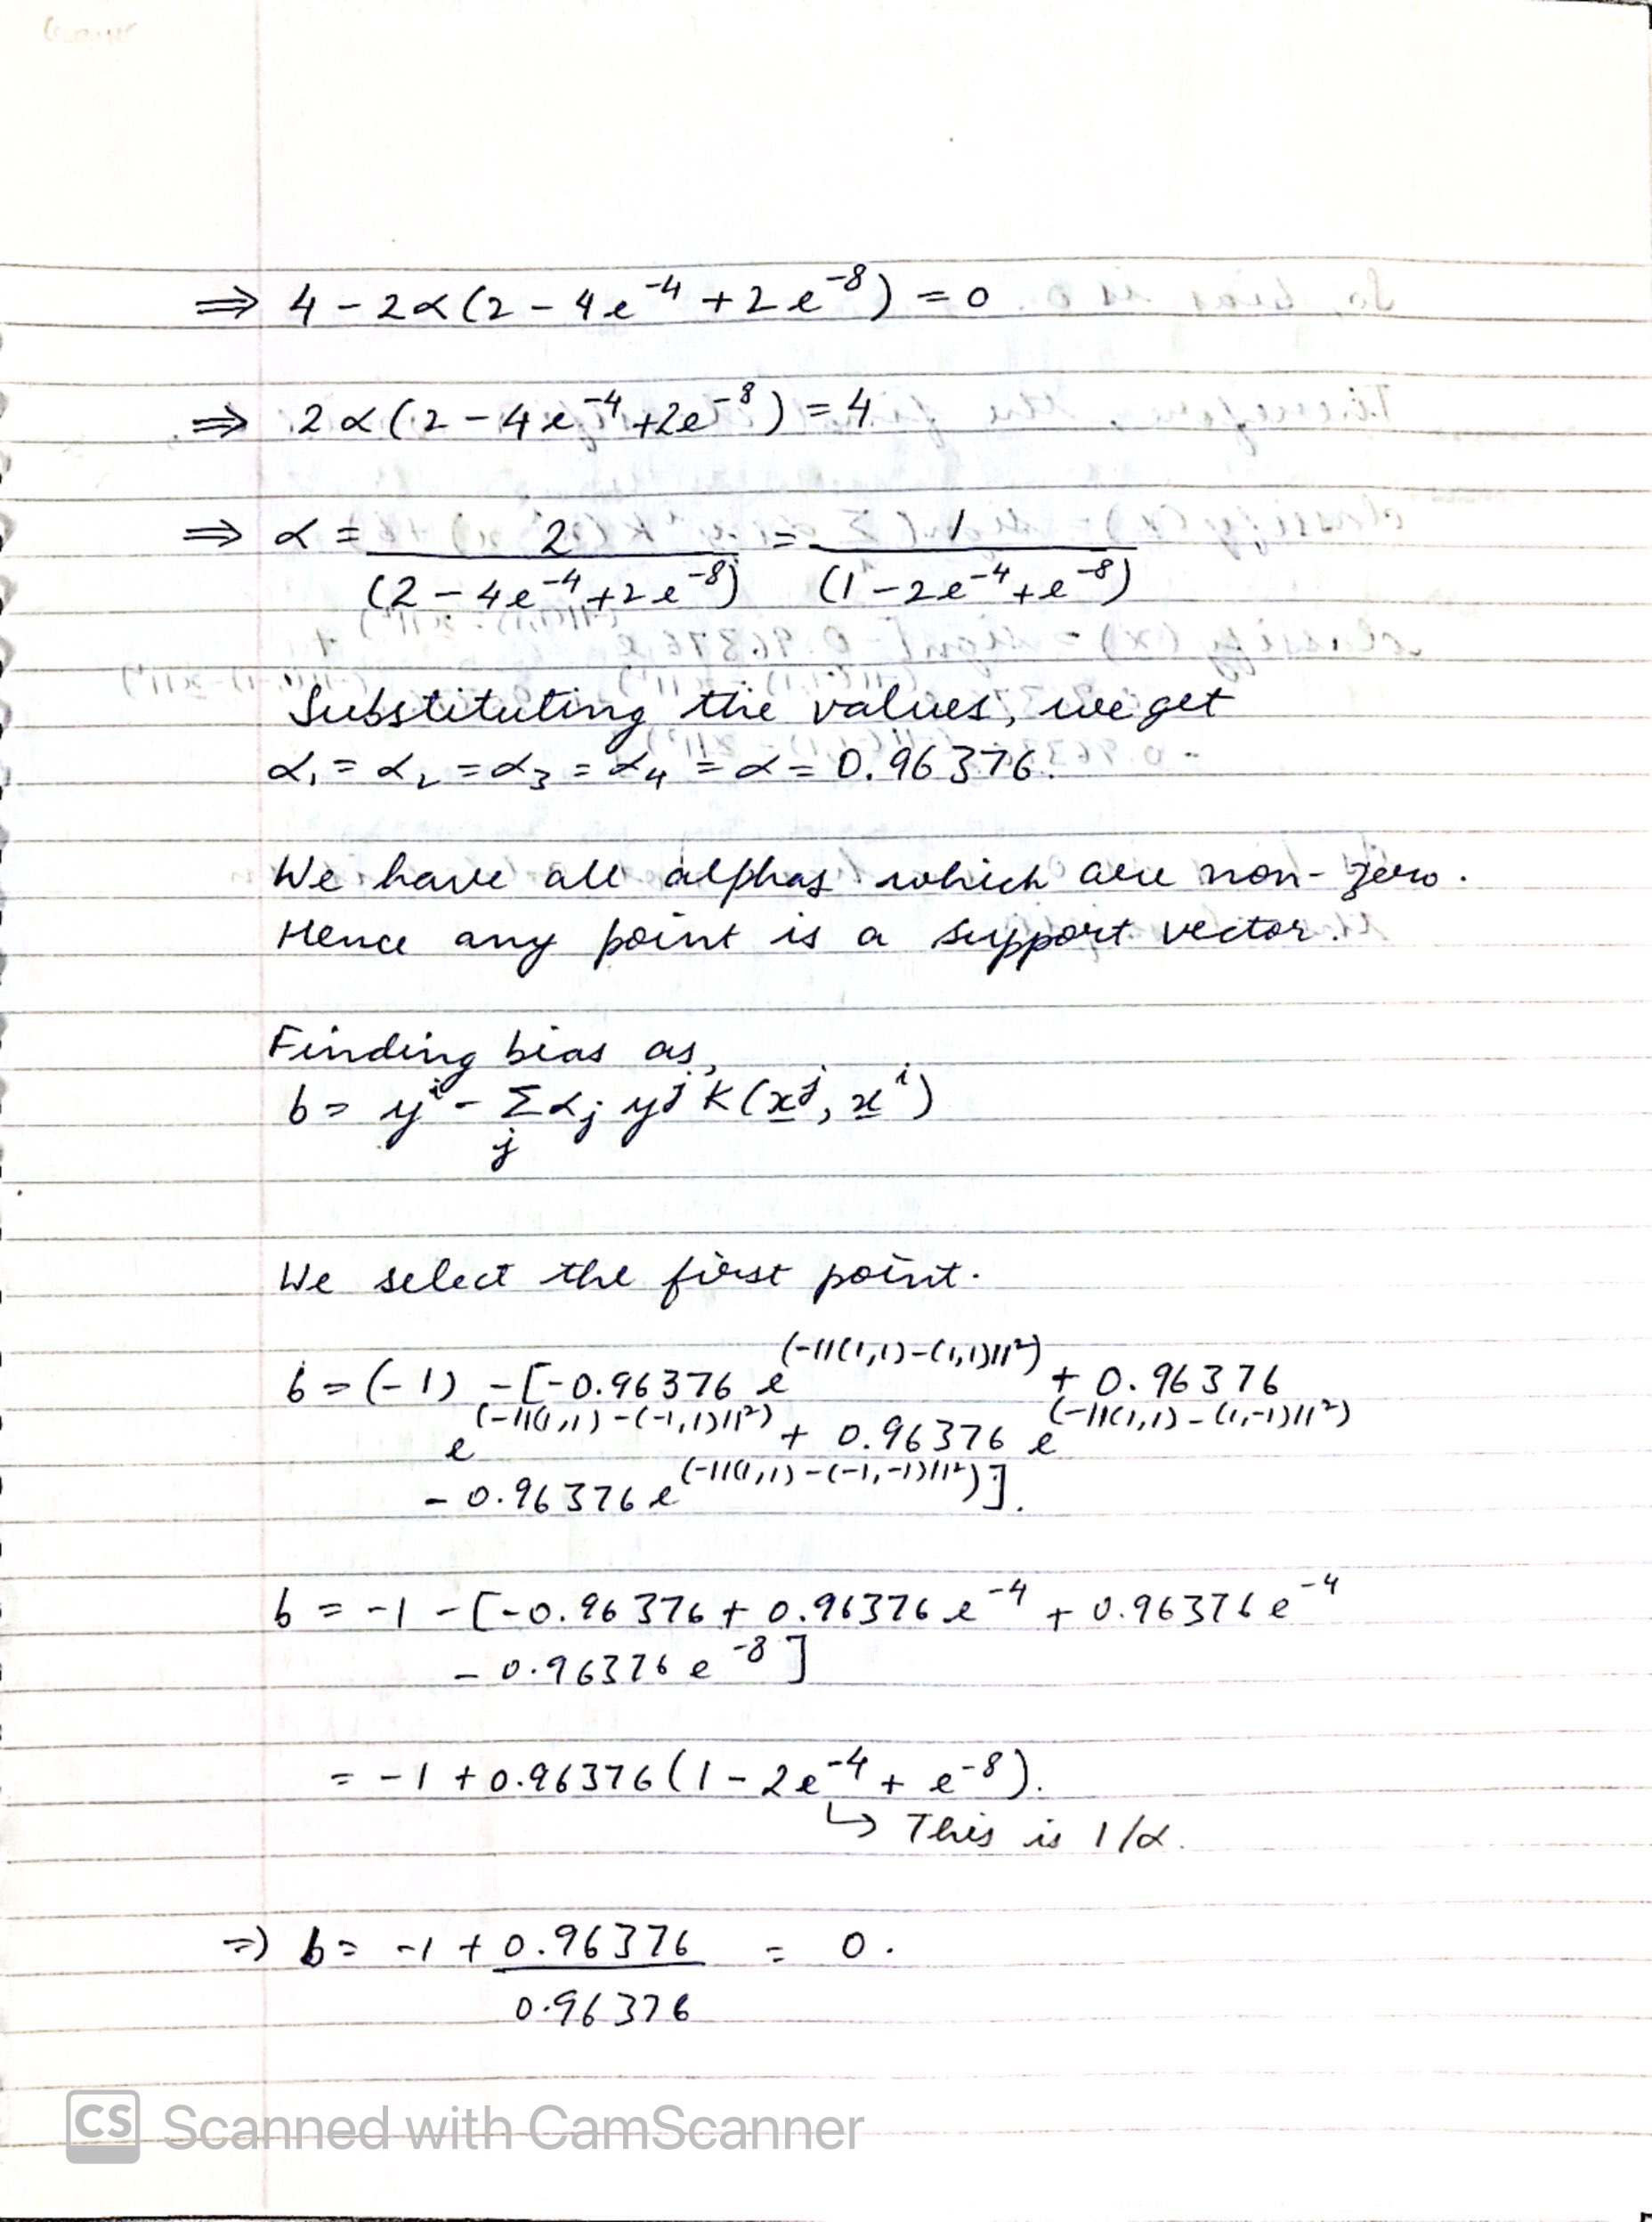 ⇒ 4 - 2α(2 - 4e^-4 + 2e^-8) = 0
⇒ 2α(2 - 4e^-4 + 2e^-8) = 4
⇒ α = 2/(2 - 4e^-4 + 2e^-8) = 1/(1 - 2e^-4 + e^-8)
Substituting the values, we get
α₁ = α₂ = α₃ = α₄ = α = 0.96376.
We have all alphas which are non-zero.
Hence any point is a support vector.
Finding bias as,
b = y^i - Σ_j α_j y^j K(x^j, x^i)
We select the first point.
b = (-1) - [-0.96376 e^(-||(1,1)-(1,1)||²) + 0.96376
e^(-||(1,1)-(-1,1)||²) + 0.96376 e^(-||(1,1)-(1,-1)||²)
- 0.96376 e^(-||(1,1)-(-1,-1)||²)].
b = -1 - [-0.96376 + 0.96376 e^-4 + 0.96376 e^-4
- 0.96376 e^-8]
= -1 + 0.96376(1 - 2e^-4 + e^-8).
↳ This is 1/α.
⇒ b = -1 + 0.96376/0.96376 = 0.
CS Scanned with CamScanner